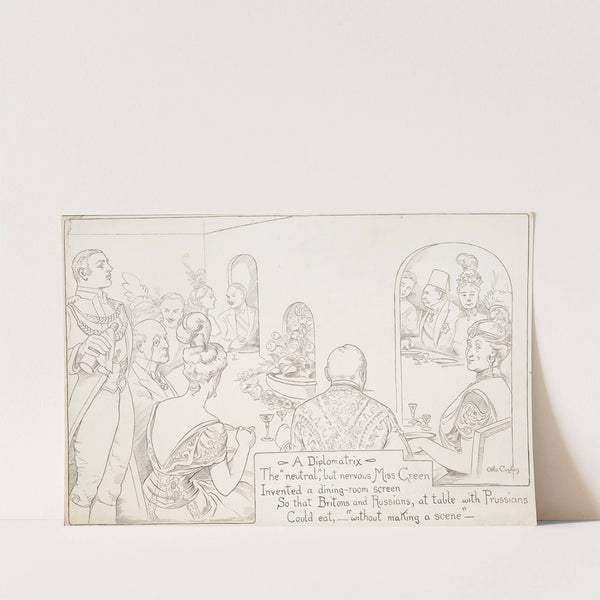 A Diplomatrix
The "neutral," but nervous Miss Green
Invented a dining-room screen
So that Britons and Russians, at table with Prussians
Could eat,—"without making a scene"—